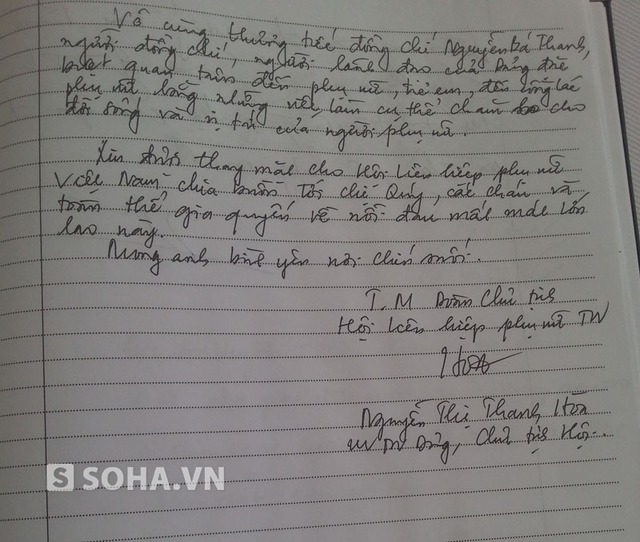 Vô cùng thương tiếc đồng chí Nguyễn Bá Thanh,
người đồng chí, người lãnh đạo của Đảng đã
biết quan tâm đến phụ nữ, trẻ em, đến công tác
phụ nữ bằng những việc làm cụ thể chăm lo cho
đời sống và vị trí của người phụ nữ.
Xin được thay mặt cho Hội Liên hiệp phụ nữ
Việt Nam chia buồn tới chị Quý, các cháu và
toàn thể gia quyến về nỗi đau mất mát lớn
lao này.
Mong anh bình yên nơi chín suối.
T.M Đoàn Chủ tịch
Hội Liên hiệp phụ nữ TW
Hòa
Nguyễn Thị Thanh Hòa
UV TW Đảng, Chủ tịch Hội.
S SOHA.VN